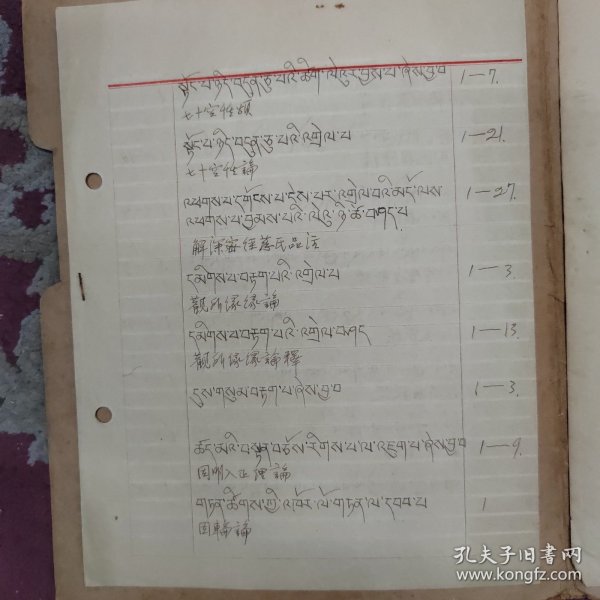 སྟོང་པ་ཉིད་བདུན་ཅུ་པའི་ཚིག་ལེའུར་བྱས་པ་ཞེས་བྱ་བ 1—7.
七十空性頌
སྟོང་པ་ཉིད་བདུན་ཅུ་པའི་འགྲེལ་པ 1—21.
七十空性論
འཕགས་པ་དགོངས་པ་ངེས་པར་འགྲེལ་པའི་མདོ་ལས་ 1—27.
འཕགས་པ་བྱམས་པའི་ལེའུ་ཉི་ཚེ་བཤད་པ
解深密經慈氏品注
དམིགས་པ་བརྟག་པའི་འགྲེལ་པ 1—3.
觀所緣緣論
དམིགས་པ་བརྟག་པའི་འགྲེལ་བཤད 1—13.
觀所緣緣論釋
དུས་གསུམ་བརྟག་པ་ཞེས་བྱ་བ 1—3.
ཚད་མའི་བསྟན་བཅོས་རིགས་པ་ལ་འཇུག་པ་ཞེས་བྱ་བ 1—9.
因明入正理論
གཏན་ཚིགས་ཀྱི་འཁོར་ལོ་གཏན་ལ་དབབ་པ 1
因輪論
孔夫子旧书网
www.kongfz.com